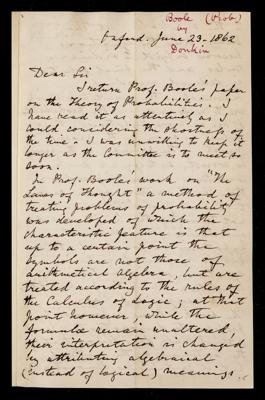 Boole (Prob.)
by
Donkin
Oxford. June 23-1862
Dear Sir
I return Prof. Boole's paper
on the Theory of Probabilities. I
have read it as attentively as I
could considering the shortness of
the time. I was unwilling to keep it
longer as the Committee is to meet so
soon.
In Prof. Boole's work on "The
Laws of Thought" a method of
treating problems of probability
was developed of which the
characteristic feature is that
up to a certain point the
symbols are not those of
arithmetical algebra, but are
treated according to the rules of
the Calculus of Logic; at that
point however, while the
formulæ remain unaltered,
their interpretation is changed
by attributing algebraical
(instead of logical) meanings